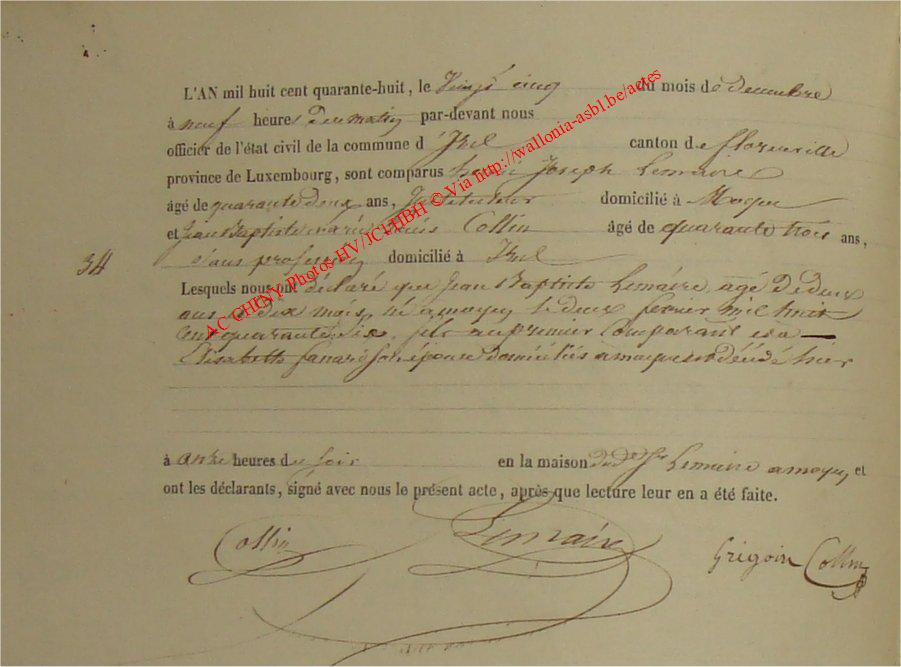 L'AN mil huit cent quarante-huit, le Vingt cinq du mois de decembre
à neuf heures du matin par-devant nous
officier de l'état civil de la commune d' Izel canton de florenville
province de Luxembourg, sont comparus Joseph Lemaire
âgé de quarante deux ans, Instituteur domicilié à Moyen
et Jean Baptiste Collin âgé de quarante trois ans,
34 sans profession domicilié à Izel
Lesquels nous ont déclaré que Jean Baptiste Lemaire, agé de deux
ans dix mois, né a moyen le deux fevrier mil huit
cent quarante six, fils au premier Comparant et a
Elisabeth son épouse domiciliés a moyen est décédé hier
à onze heures du soir en la maison du dit Sr Lemaire a moyen, et
ont les déclarants, signé avec nous le présent acte, après que lecture leur en a été faite.
Collin Lemaire Grigoire Collin
AC CHINY Photos HV/JCH/BH © Via http://wallonia-asbl.be/actes